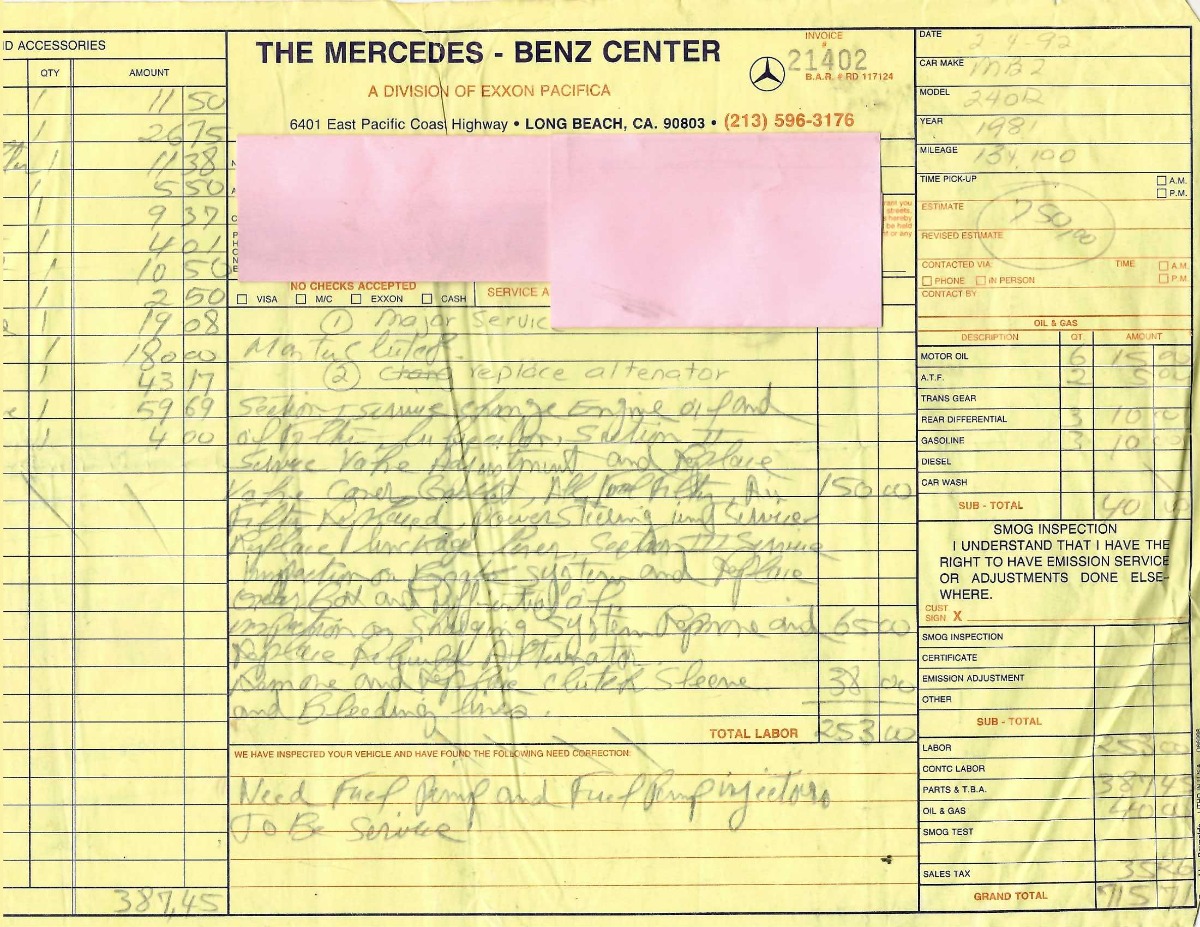 D ACCESSORIES
QTY AMOUNT
1 11 50
1 26 75
1 11 38
1 5 50
1 9 37
1 4 01
1 10 50
1 2 50
1 19 08
1 180 00
1 43 17
1 59 69
1 4 00
387,45
THE MERCEDES - BENZ CENTER
A DIVISION OF EXXON PACIFICA
6401 East Pacific Coast Highway • LONG BEACH, CA. 90803 • (213) 596-3176
INVOICE
#
21402
B.A.R. # RD 117124
rant you
streets,
hereby
be held
t or any
NO CHECKS ACCEPTED
VISA M/C EXXON CASH
SERVICE A
① Major Servic
② replace altenator
Section I service change Engine oil and
Section II
Service Valve Adjustment and Replace
Valve Cover Air 150 00
Filter Replaced power steering Service
Replace Section III Service
system and Replace
and
inspection on system Remove and 65 00
Replace Rebuilt Alternator.
Remove and replace clutch 38 00
and Bleeding lines.
TOTAL LABOR 253 00
WE HAVE INSPECTED YOUR VEHICLE AND HAVE FOUND THE FOLLOWING NEED CORRECTION:
Need Fuel Pump and Fuel Pump injectors
To Be Service
DATE 2-4-92
CAR MAKE MBZ
MODEL 240D
YEAR 1981
MILEAGE 134,100
TIME PICK-UP A.M.
P.M.
ESTIMATE 750,00
REVISED ESTIMATE
CONTACTED VIA: TIME A.M.
PHONE IN PERSON P.M.
CONTACT BY
OIL & GAS
DESCRIPTION QT. AMOUNT
MOTOR OIL 6 15 00
A.T.F. 2 5 00
TRANS GEAR
REAR DIFFERENTIAL 3 10 00
GASOLINE 3 10 00
DIESEL
CAR WASH
SUB - TOTAL 40 00
SMOG INSPECTION
I UNDERSTAND THAT I HAVE THE
RIGHT TO HAVE EMISSION SERVICE
OR ADJUSTMENTS DONE ELSE-
WHERE.
CUST
SIGN X
SMOG INSPECTION
CERTIFICATE
EMISSION ADJUSTMENT
OTHER
SUB - TOTAL
LABOR 253 00
CONTC LABOR
PARTS & T.B.A. 387 45
OIL & GAS 40 00
SMOG TEST
SALES TAX
GRAND TOTAL 715 71